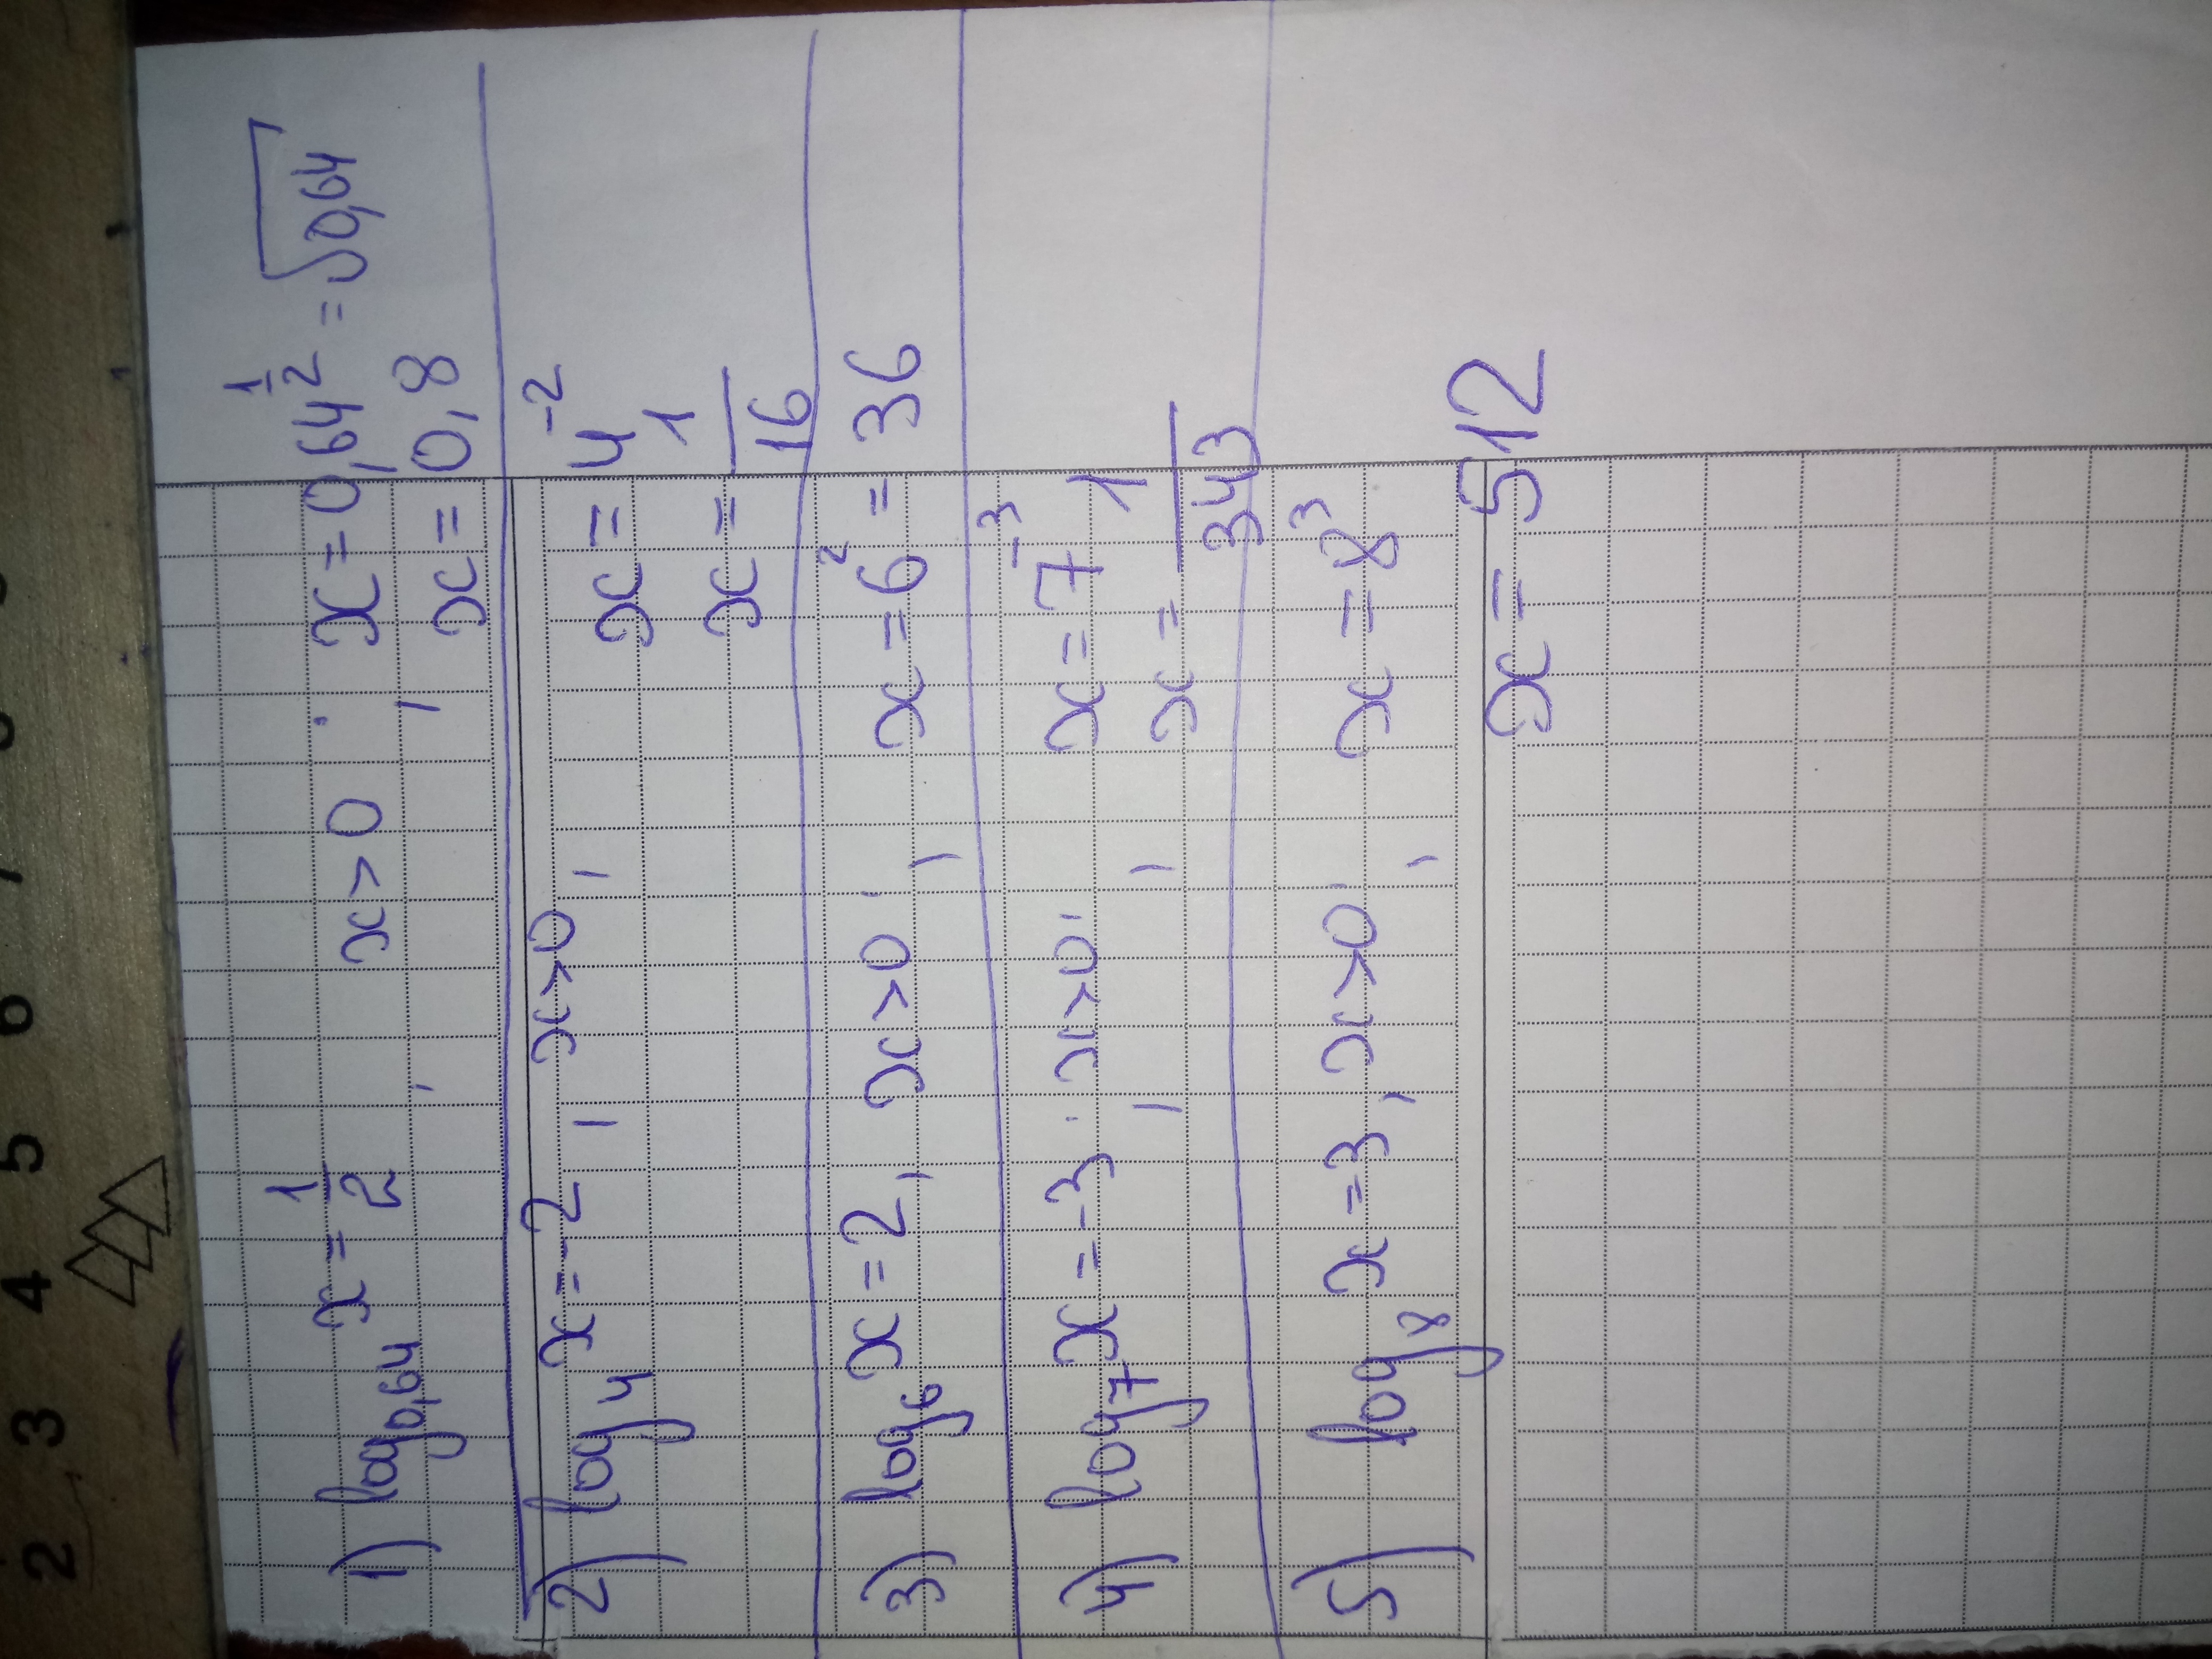 1) log₀,₆₄ x = 1/2, x > 0, x = 0,64^(1/2) = √0,64
x = 0,8
2) log₄ x = -2, x > 0, x = 4⁻²
x = 1/16
3) log₆ x = 2, x > 0, x = 6² = 36
4) log₇ x = -3, x > 0, x = 7⁻³
x = 1/343
5) log₈ x = 3, x > 0, x = 8³
x = 512
2 3 4 5 6 7